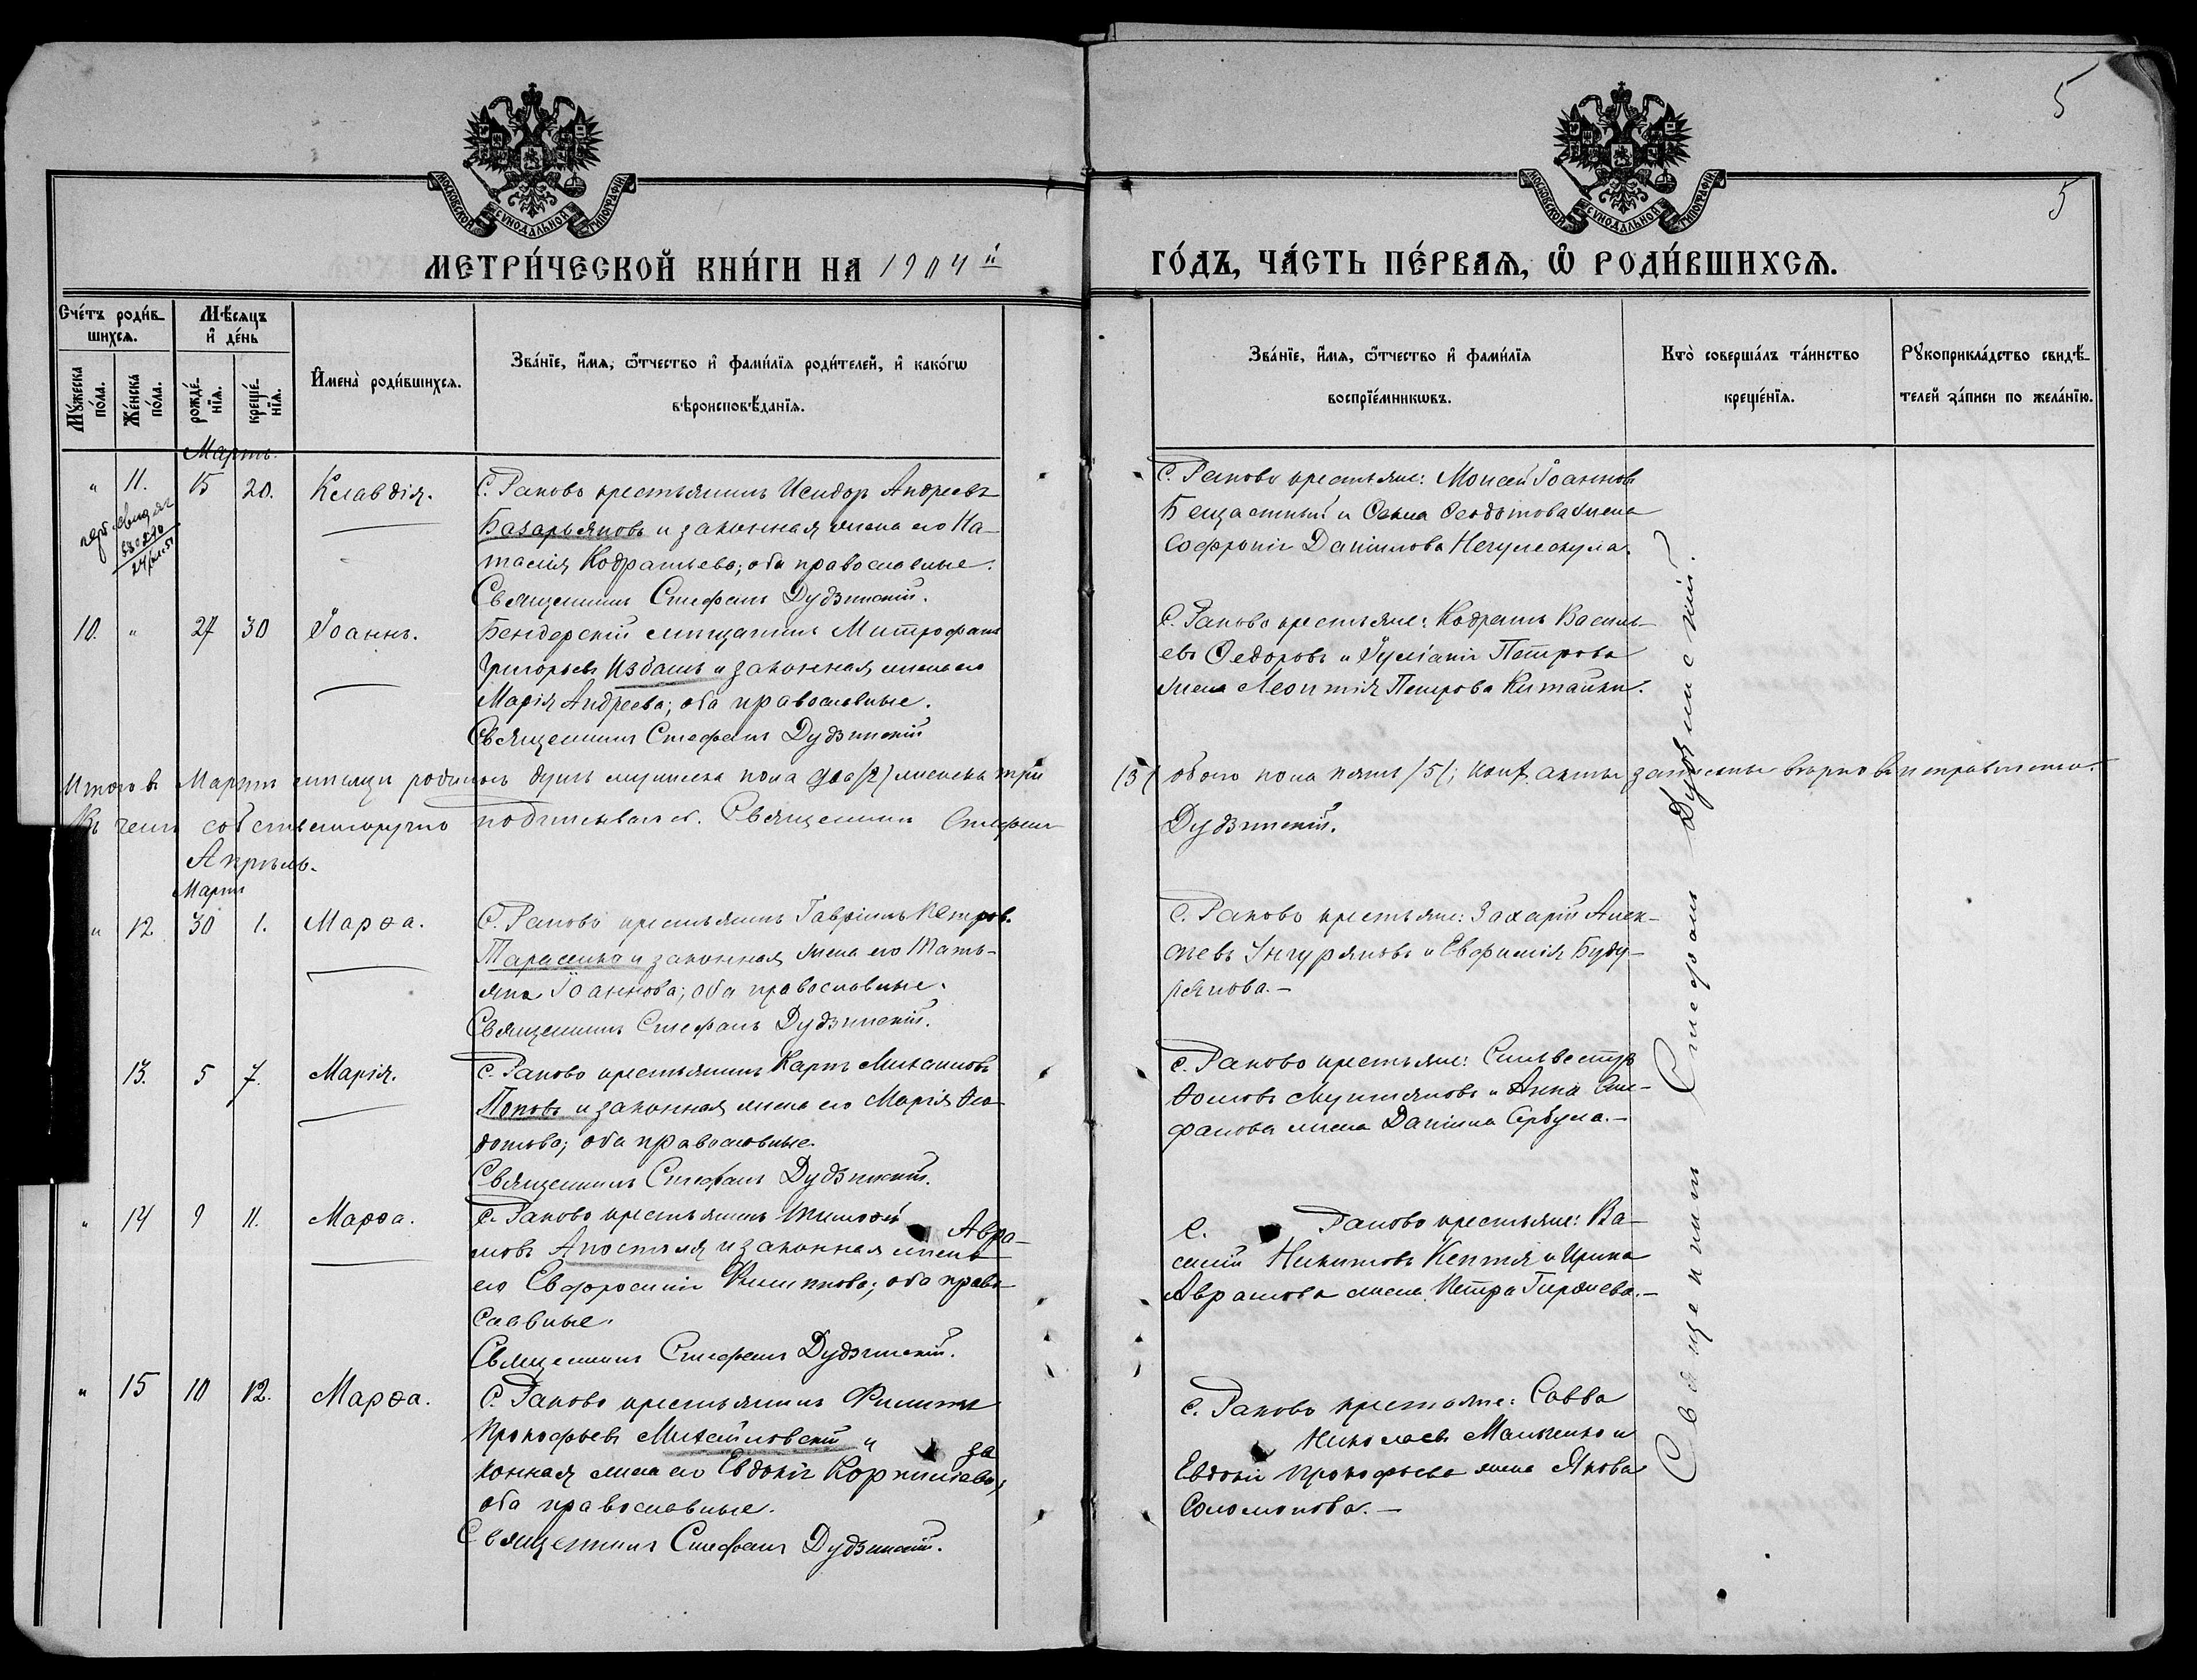 5
5
МОСКОВСКОЙ СУНОДАЛЬНОЙ ТИПОГРАФІИ
МОСКОВСКОЙ СУНОДАЛЬНОЙ ТИПОГРАФІИ
МЕТРИ́ЧЕСКОЙ КНИ́ГИ НА 1904й
ГО́ДЪ, ЧА́СТЬ ПЕ́РВАѦ, Ѡ РОДИ́ВШИХСѦ.
Сче́тъ роди́вшихсѧ.
Мꙋ́жеска по́ла.
Же́нска по́ла.
Мѣ́сяцъ и҆ де́нь
рожде́нїѧ.
креще́нїѧ.
И҆мена̀ роди́вшихсѧ.
Зва́нїе, и҆́мѧ, ѻ҆́тчество и҆ фами́лїѧ роди́телей, и҆ како́гѡ
вѣроисповѣ́данїѧ.
Зва́нїе, и҆́мѧ, ѻ҆́тчество и҆ фами́лїѧ
воспрїе́мникѡвъ.
Кто̀ соверша́лъ та́инство
креще́нїѧ.
Рꙋкоприкла́дство свидѣ́-
телей за́писи по жела́нїю.
Мартъ.
" 11. 15 20. Клавдія.
С. Раково крестьянинъ Исидор Андреевъ
Базарьяновъ и законная жена его На-
тасія Кодратьева; оба православные.
Священникъ Стефанъ Дудзинскій.
С. Раково крестьяне: Моисей Іоанновъ
Бещастный и Феодотова жена
Софронія Даніилова
10. " 27 30 Іоаннъ.
Бендерскій мѣщанинъ Митрофанъ
Григорьевъ Избашъ и законная жена его
Марія Андреева; оба православные.
Священникъ Стефанъ Дудзинскій
С. Раково крестьяне: Кодратъ Василь-
евъ Федоровъ и Іуліанія Петрова
жена Леонтія Петрова Китайки.
Итого въ Мартѣ мѣсяцѣ родилось душъ мужеска пола два /2/ женска три
/3/ обоего пола пять /5/; акты записаны вѣрно
Въ чемъ собственноручно подписываюсь. Священникъ Стефанъ
Дудзинскій.
Апрѣль.
Мартъ
" 12 30 1. Марѳа.
С. Раково крестьянинъ Гавріилъ Петров.
Тарасенко и законная жена его Тать-
яна Іоаннова; оба православные.
Священникъ Стефанъ Дудзинскій.
С. Раково крестьяне: Захарій Алек-
сѣевъ Унгуряновъ и Евфимія Буду-
рянова.—
13. 5 7. Марія.
С. Раково крестьянинъ Карпъ Михаиловъ
Поповъ и законная жена его Марія Ѳео-
дотова; оба православные.
Священникъ Стефанъ Дудзинскій.
С. Раково крестьяне: Сильвестръ
и Анна Сте-
фанова жена Даніила Сербула.—
" 14 9 11. Марѳа.
С. Раково крестьянинъ Тимоѳей Авра-
мовъ Апостоля и законная жена
его Евфросинія Филиппова; оба право-
славные.
Священникъ Стефанъ Дудзинскій.
С. Раково крестьяне: Ва-
силій Никитовъ Кептя и Ирина
Аврамова жена Петра
" 15 10 12. Марѳа.
С. Раково крестьянинъ Филиппъ
Прокофьевъ Михайловскій и за
конная жена его Евдокія Корниліева;
оба православные.
Священникъ Стефанъ Дудзинскій.
С. Раково крестьяне: Савва
Николаевъ Мальченко и
Евдокія Прокофьева жена Якова
Соломонова.—
Священникъ Стефанъ Дудзинскій.